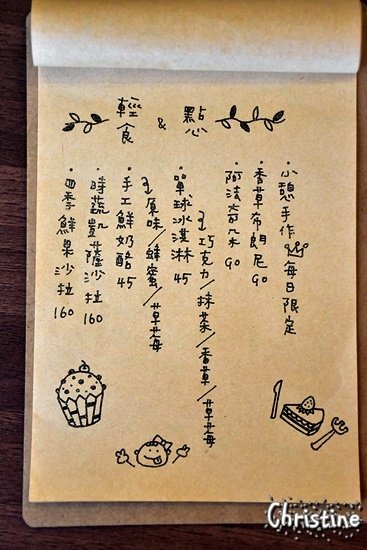 輕食 & 點心
・小憩手作 每日限定
・香草布朗尼 90
・阿法奇朵 90
・單球冰淇淋 45
巧克力/抹茶/香草/草莓
・手工鮮奶酪 45
原味/蜂蜜/草莓
・時蔬凱薩沙拉 160
・四季鮮果沙拉 160
Christine